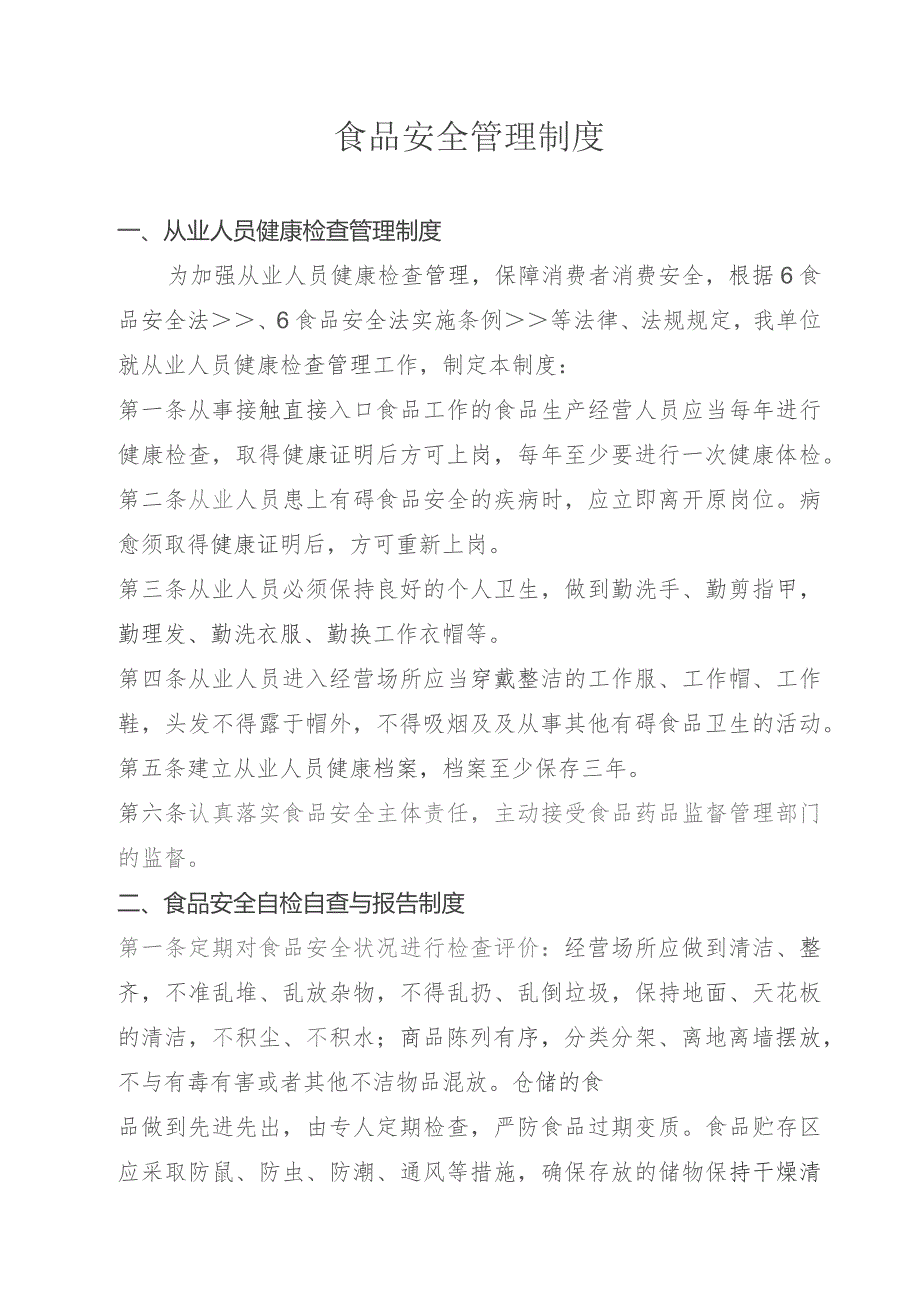 食品安全管理制度
一、从业人员健康检查管理制度
为加强从业人员健康检查管理，保障消费者消费安全，根据6食
品安全法＞＞、6食品安全法实施条例＞＞等法律、法规规定，我单位
就从业人员健康检查管理工作，制定本制度：
第一条从事接触直接入口食品工作的食品生产经营人员应当每年进行
健康检查，取得健康证明后方可上岗，每年至少要进行一次健康体检。
第二条从业人员患上有碍食品安全的疾病时，应立即离开原岗位。病
愈须取得健康证明后，方可重新上岗。
第三条从业人员必须保持良好的个人卫生，做到勤洗手、勤剪指甲，
勤理发、勤洗衣服、勤换工作衣帽等。
第四条从业人员进入经营场所应当穿戴整洁的工作服、工作帽、工作
鞋，头发不得露于帽外，不得吸烟及及从事其他有碍食品卫生的活动。
第五条建立从业人员健康档案，档案至少保存三年。
第六条认真落实食品安全主体责任，主动接受食品药品监督管理部门
的监督。
二、食品安全自检自查与报告制度
第一条定期对食品安全状况进行检查评价：经营场所应做到清洁、整
齐，不准乱堆、乱放杂物，不得乱扔、乱倒垃圾，保持地面、天花板
的清洁，不积尘、不积水；商品陈列有序，分类分架、离地离墙摆放，
不与有毒有害或者其他不洁物品混放。仓储的食
品做到先进先出，由专人定期检查，严防食品过期变质。食品贮存区
应采取防鼠、防虫、防潮、通风等措施，确保存放的储物保持干燥清